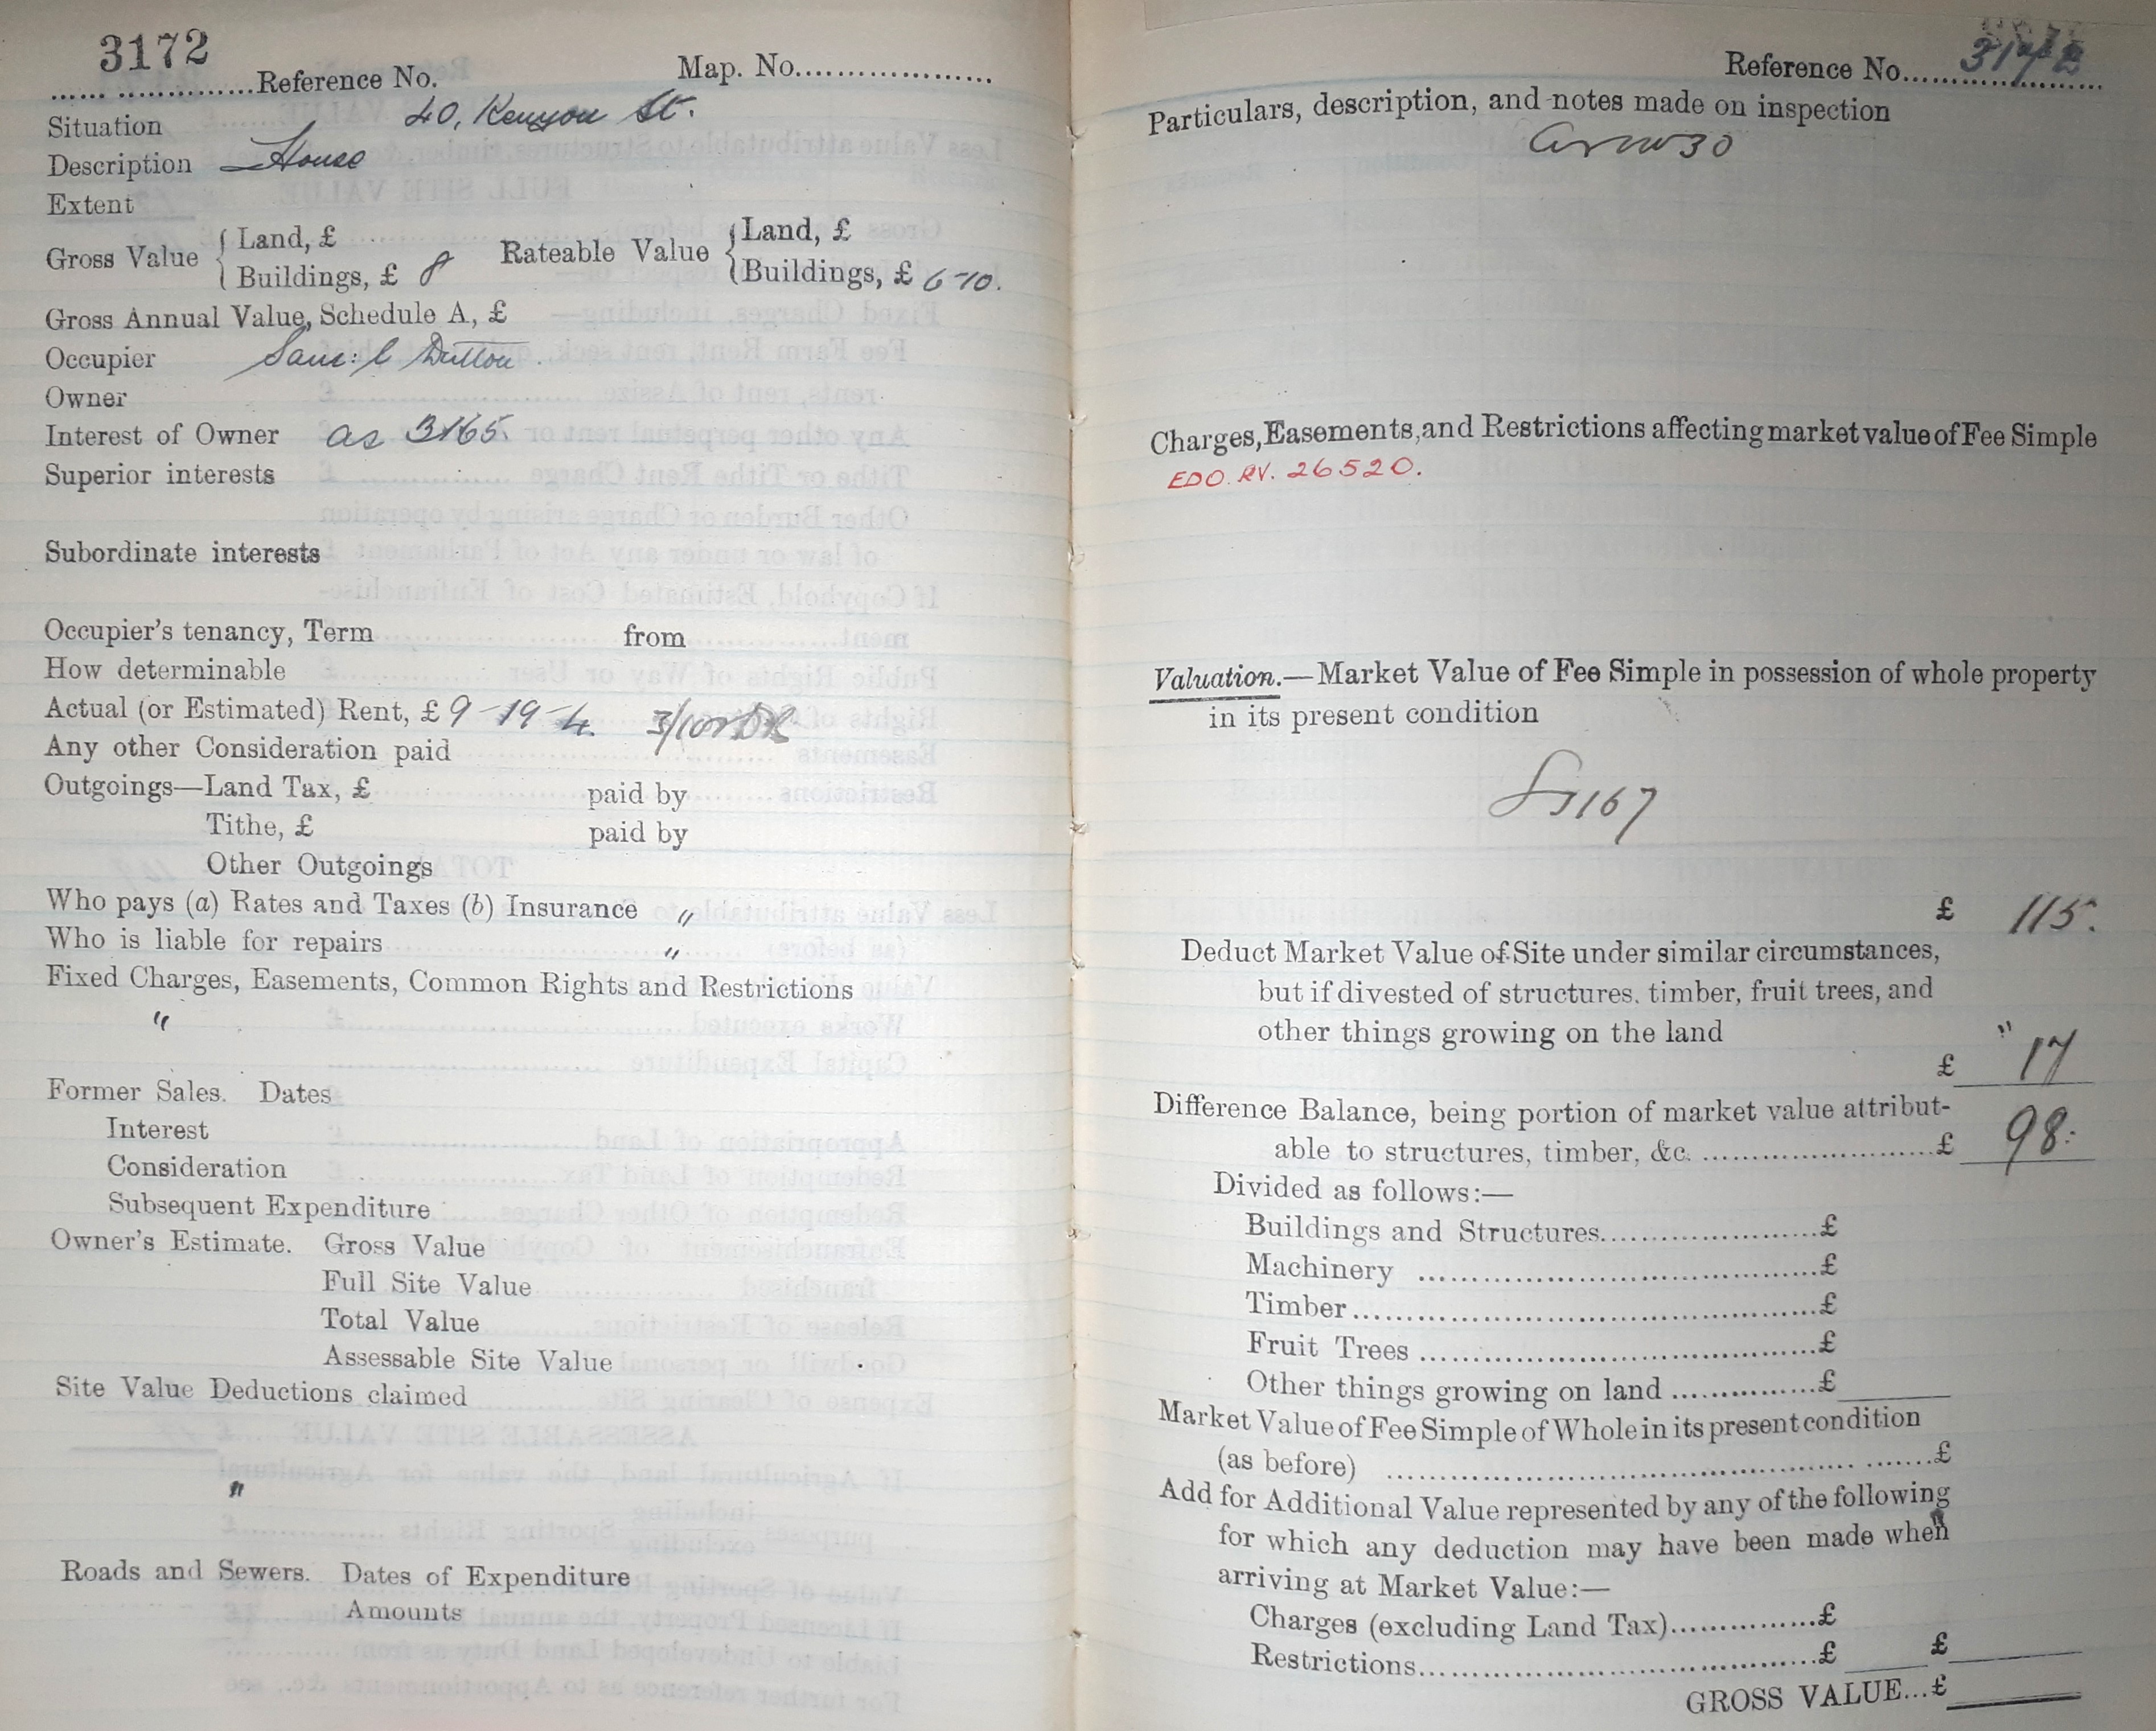 3172
...... ...............Reference No. Map. No.....................
Situation 40, Kenyon St.
Description House
Extent
Gross Value { Land, £ Rateable Value { Land, £
Buildings, £ 8 Buildings, £ 6-10.
Gross Annual Value, Schedule A, £
Occupier Sam: l Dutton
Owner
Interest of Owner as 3165.
Superior interests
Subordinate interests
Occupier's tenancy, Term from
How determinable
Actual (or Estimated) Rent, £ 9-19-4. 3/10
Any other Consideration paid
Outgoings—Land Tax, £ paid by
Tithe, £ paid by
Other Outgoings
Who pays (a) Rates and Taxes (b) Insurance "
Who is liable for repairs "
Fixed Charges, Easements, Common Rights and Restrictions
"
Former Sales. Dates
Interest
Consideration
Subsequent Expenditure
Owner's Estimate. Gross Value
Full Site Value
Total Value
Assessable Site Value
Site Value Deductions claimed
"
Roads and Sewers. Dates of Expenditure
Amounts
Reference No.....................
Particulars, description, and notes made on inspection
Charges, Easements, and Restrictions affecting market value of Fee Simple
EDO. RV. 26520.
Valuation.—Market Value of Fee Simple in possession of whole property
in its present condition
£ 115.
Deduct Market Value of Site under similar circumstances,
but if divested of structures. timber, fruit trees, and
other things growing on the land "
£ 17
Difference Balance, being portion of market value attribut-
able to structures, timber, &c. .........................£ 98:
Divided as follows:—
Buildings and Structures.......................£
Machinery ..........................................£
Timber................................................£
Fruit Trees ..........................................£
Other things growing on land ...............£
Market Value of Fee Simple of Whole in its present condition
(as before) ................................................ .......£
Add for Additional Value represented by any of the following
for which any deduction may have been made when
arriving at Market Value:—
Charges (excluding Land Tax)...............£
Restrictions..........................................£ £
GROSS VALUE...£